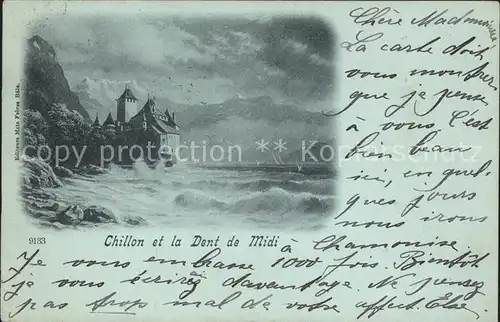 Chère Mademoiselle
La carte doit
vous montrer
que je pense
à vous. C'est
bien beau
ici, en quel-
ques jours
nous irons
à Chamonise
Editeurs Metz Frères Bâle.
**copyrightpostcard**
9133 Chillon et la Dent de Midi
Je vous embrasse 1000 fois. Bientôt
je vous écrirai davantage. Ne pensez
pas trop mal de votre affect. Else